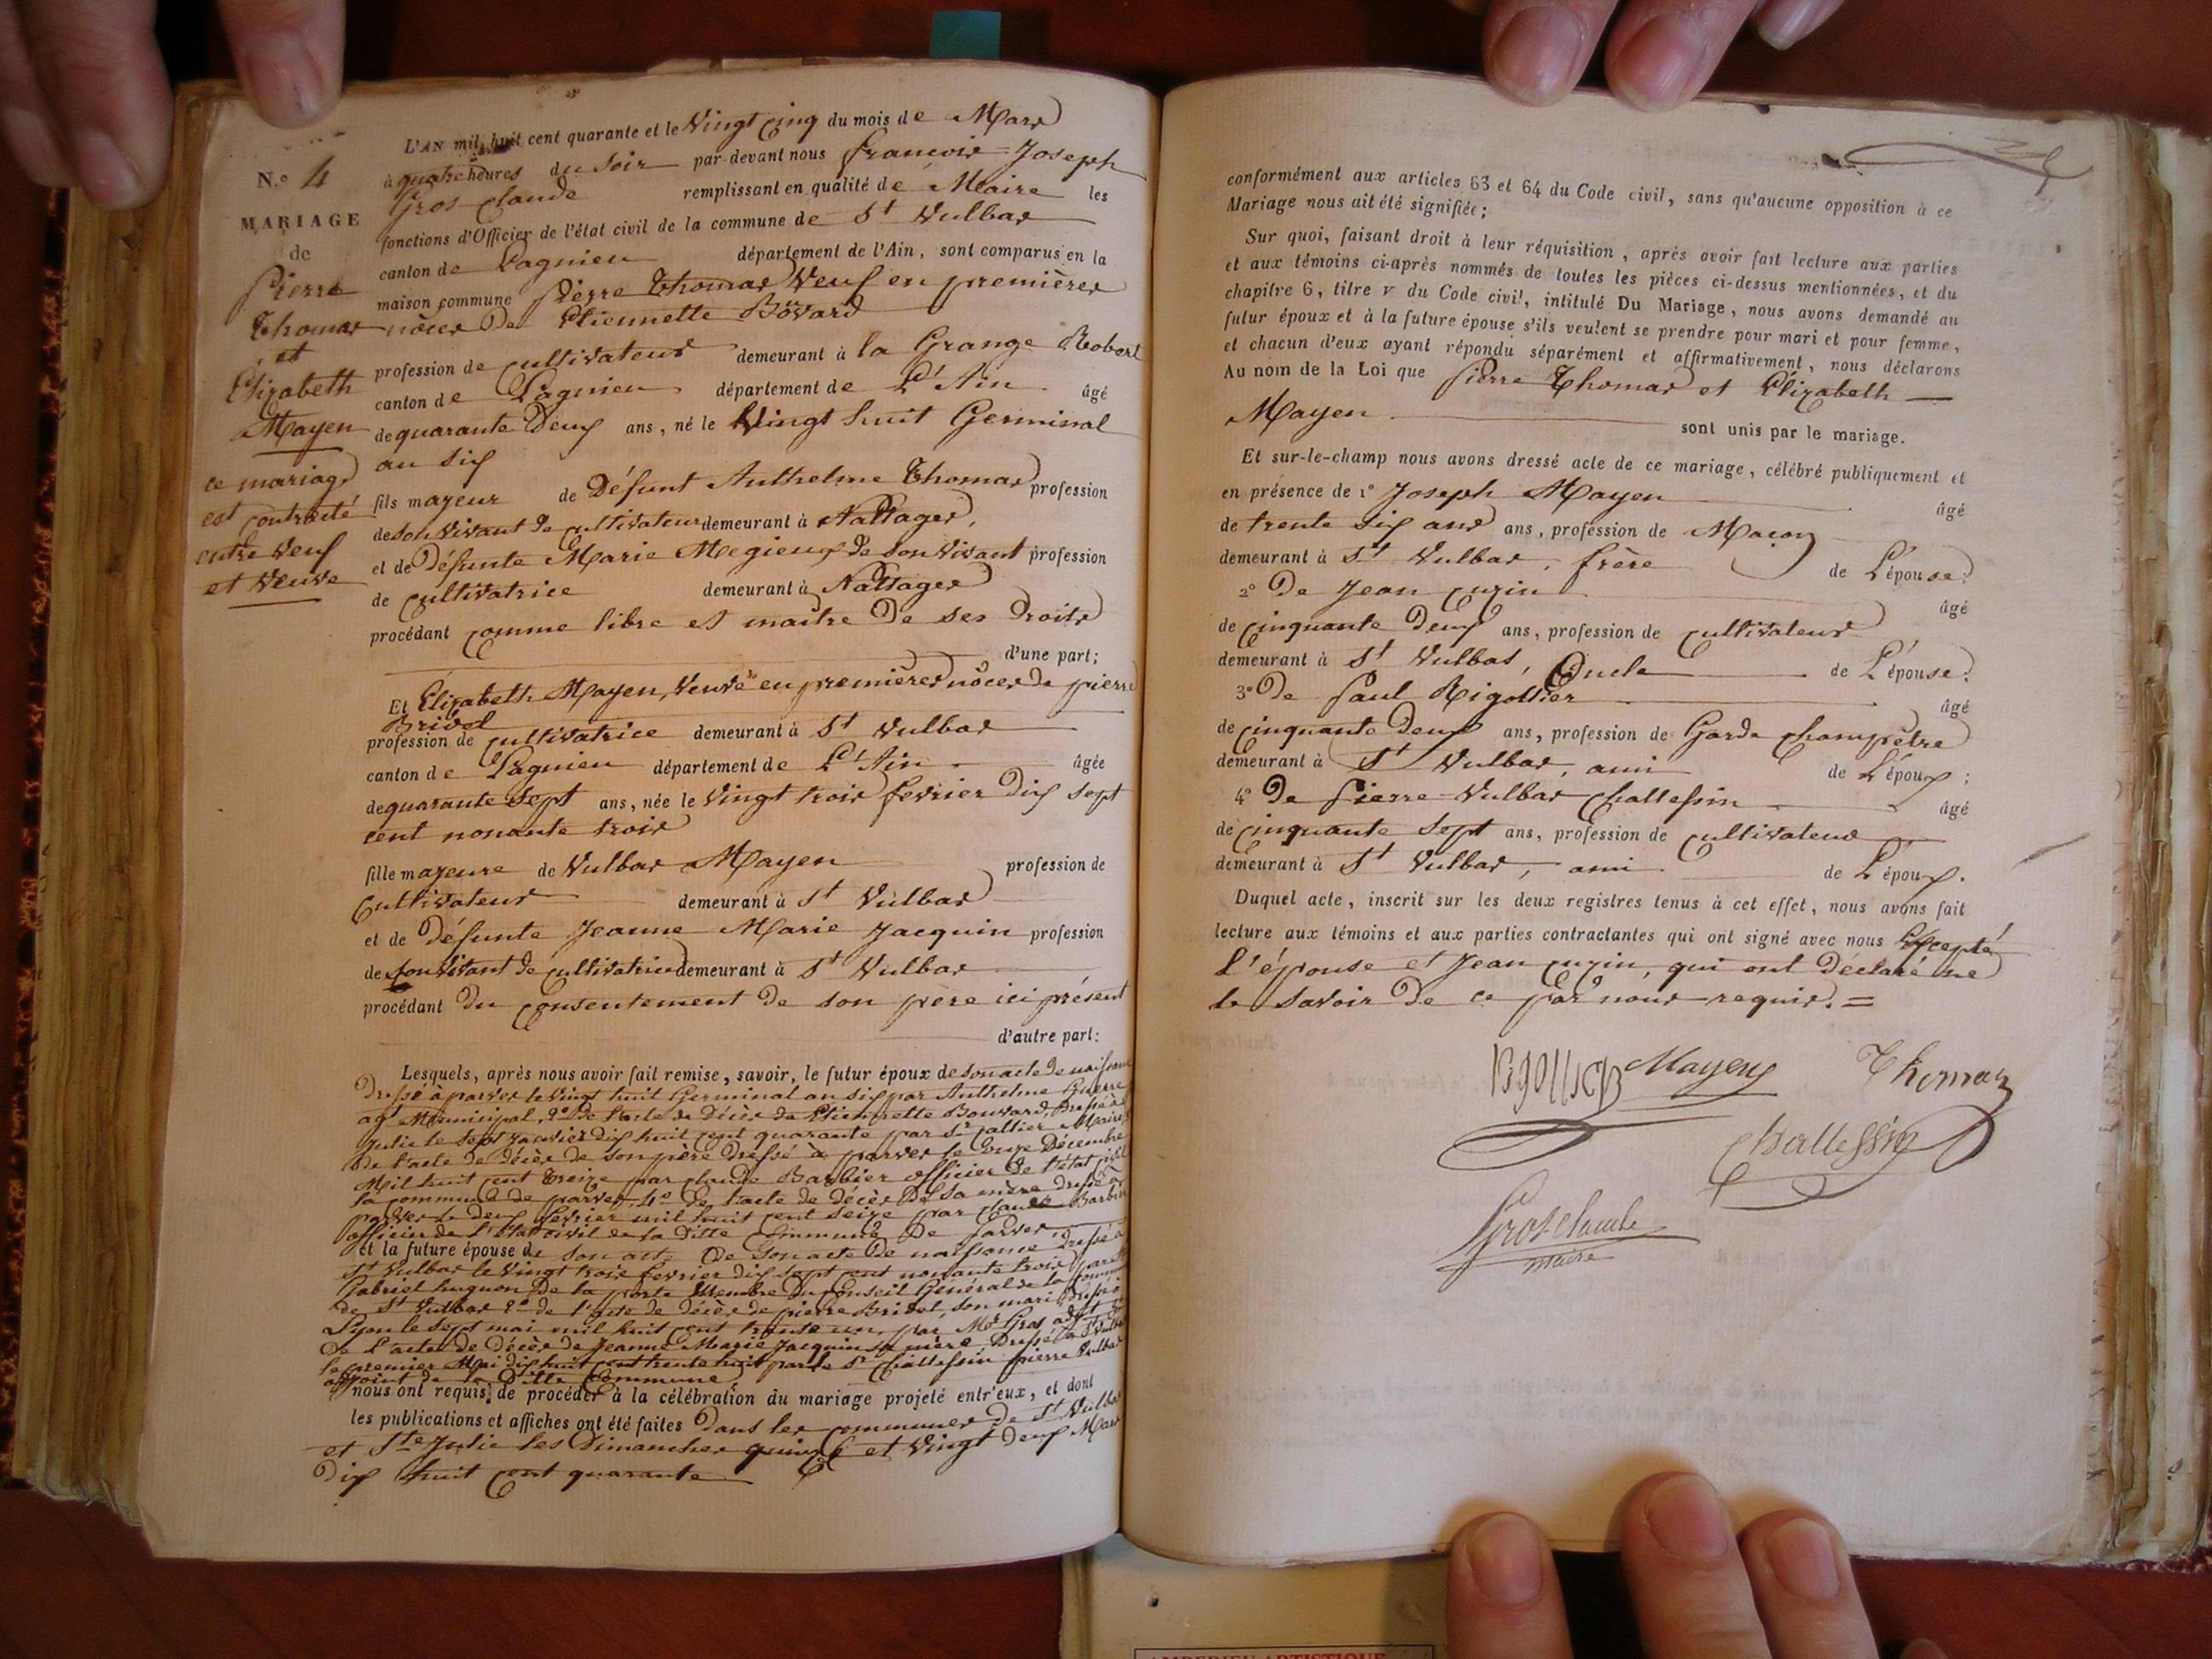 N.° 4
MARIAGE
de
Pierre
Thomas
et
Elizabeth
Mayen
ce mariage
est contracté
entre Veuf
et Veuve
L'AN mil huit cent quarante et le Vingt cinq du mois de Mars
à quatre heures du soir par-devant nous françois Joseph
Gros claude remplissant en qualité de Maire les
fonctions d'Officier de l'état civil de la commune de St Vulbas
canton de Lagnieu département de l'Ain, sont comparus en la
maison commune Pierre Thomas Veuf en premières
nôces De Etiennette Bovard
profession de cultivateur demeurant à la Grange Robert
canton de Lagnieu département de L'Ain âgé
de quarante Deux ans, né le Vingt huit Germinal
an six
fils majeur de Défunt Anthelme Thomas profession
de son vivant de cultivateur demeurant à Nattages,
et de Défunte Marie Megieux De son vivant profession
de cultivatrice demeurant à Nattages
procédant comme libre et maître De ses Droits
d'une part;
Et Elizabeth Mayen, Veuve en premières nôces De pierre
Brivel
profession de cultivatrice demeurant à St Vulbas
canton de Lagnieu département de L'Ain âgée
de quarante sept ans, née le Vingt trois fevrier Dix sept
cent nonante trois
fille majeure de Vulbas Mayen profession de
cultivateur demeurant à St Vulbas
et de Défunte Jeanne Marie Jacquin profession
de son Vivant de cultivatrice demeurant à St Vulbas
procédant Du consentement De son père ici présent
d'autre part:
Lesquels, après nous avoir fait remise, savoir, le futur époux de son acte de naissance
Dressé à parves le Vingt huit Germinal an six par Anthelme Guerre
agt Municipal, 2° De l'acte de Décès de Etiennette Bouvard, Dressé à Ste
Julie le sept janvier Dix huit cent quarante par Sr Maire
De l'acte de Décès de son père Dressé à parves le onze Décembre
Mil huit cent treize par claude Barbier officier De l'état civil
la commune de parves, 4° De l'acte de Décès De sa mère Dressé à
parves le Deux fevrier mil huit cent seize par claude Barbier
officier de l'état civil de la Ditte commune De parves,
et la future épouse de son acte De son acte De naissance Dressé à
St Vulbas le Vingt trois fevrier Dix sept cent nonante trois par
Gabriel hugnon De la porte Membre Du Conseil Général de la Commune
de St Vulbas 2° de l'acte de Décès de pierre Brivel, son mari, Dressé à
Lyon le sept mai mil huit cent trente un, par Mr Gros adjt
De l'acte de Décès de Jeanne Marie Jacquin sa mère Dressé à St Vulbas
le premier Mai dix huit cent trente huit par le Sr Challessin pierre Vulbas
adjoint de la Ditte Commune
nous ont requis de procéder à la célébration du mariage projeté entr'eux, et dont
les publications et affiches ont été faites Dans les communes De St Vulbas
et Ste Julie les Dimanches quinze et Vingt Deux Mars
Dix huit cent quarante
conformément aux articles 63 et 64 du Code civil, sans qu'aucune opposition à ce
Mariage nous ait été signifiée;
Sur quoi, faisant droit à leur réquisition, après avoir fait lecture aux parties
et aux témoins ci-après nommés de toutes les pièces ci-dessus mentionnées, et du
chapitre 6, titre v du Code civil, intitulé Du Mariage, nous avons demandé au
futur époux et à la future épouse s'ils veulent se prendre pour mari et pour femme,
et chacun d'eux ayant répondu séparément et affirmativement, nous déclarons
Au nom de la Loi que Pierre Thomas et Elizabeth
Mayen sont unis par le mariage.
Et sur-le-champ nous avons dressé acte de ce mariage, célébré publiquement et
en présence de 1° Joseph Mayen âgé
de trente six ans ans, profession de Maçon
demeurant à St Vulbas, frère de L'épouse;
2° De Jean cuzin âgé
de cinquante Deux ans, profession de cultivateur
demeurant à St Vulbas, Oncle de L'épouse;
3° De Paul Rigottier âgé
de cinquante Deux ans, profession de Garde champêtre
demeurant à St Vulbas, ami de L'époux;
4° De Pierre Vulbas Challessin âgé
de cinquante sept ans, profession de cultivateur
demeurant à St Vulbas, ami de L'époux.
Duquel acte, inscrit sur les deux registres tenus à cet effet, nous avons fait
lecture aux témoins et aux parties contractantes qui ont signé avec nous Excepté
l'épouse et Jean cuzin, qui ont Déclaré ne
le savoir De ce par nous requis. =
Mayen Thomas
Challessin
Grosclaude
maire